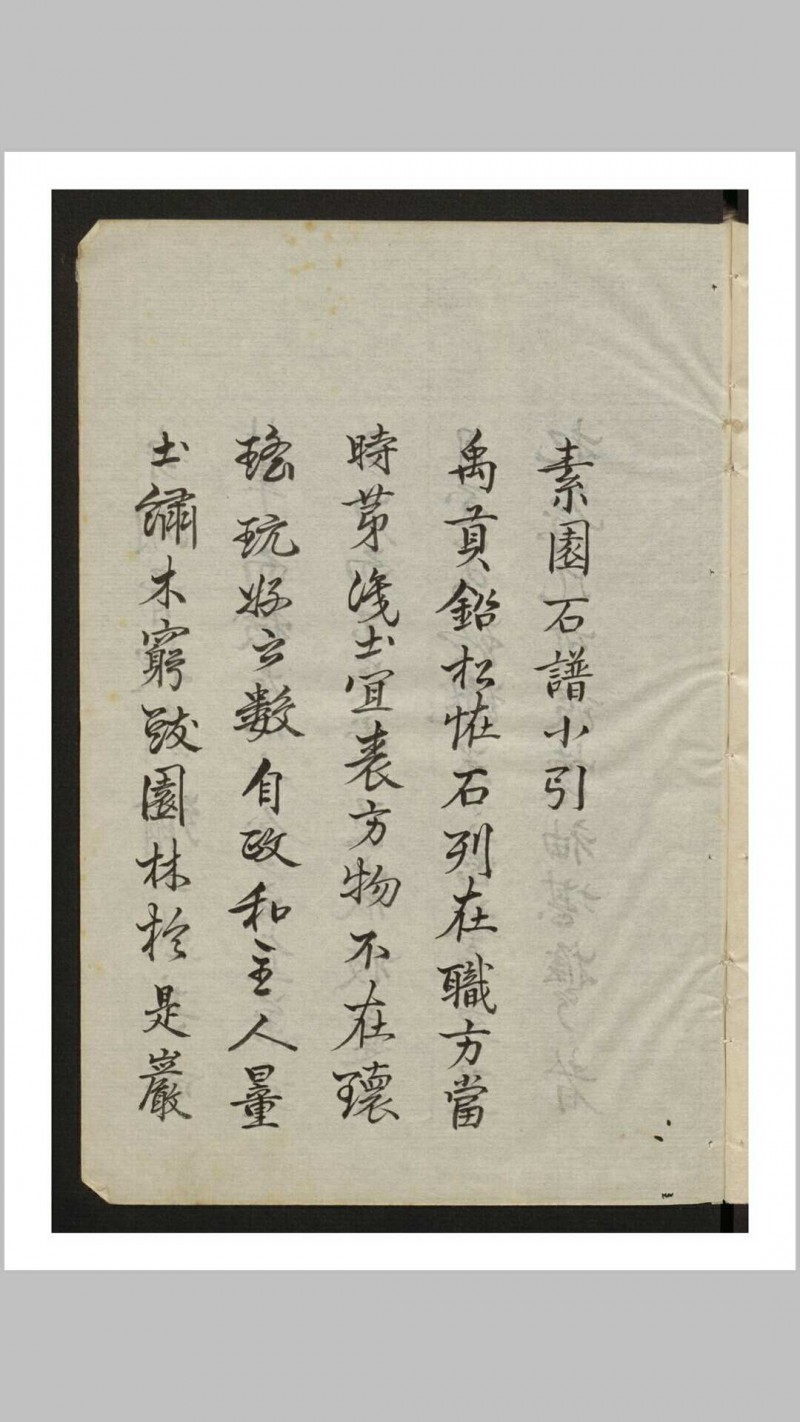 素園石譜小引
禹貢鉛松恠石列在職方當
時苐土宜表方物不在瓌
瑤玩好之數自政和主人量
土繡木窮園林於是巖